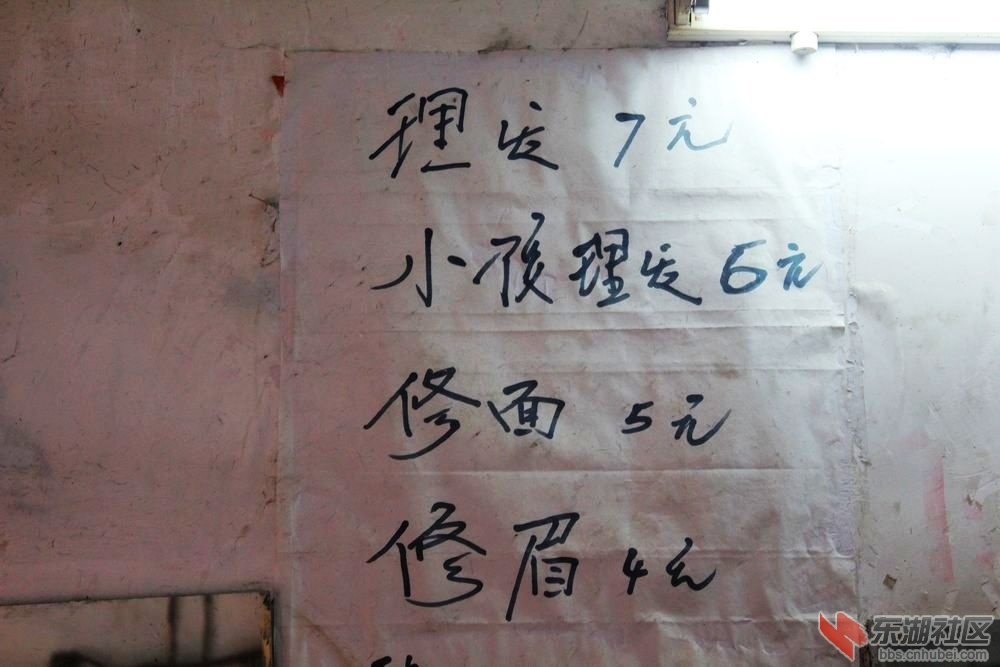 理发 7元
小孩理发 6元
修面 5元
修眉 4元
东湖社区
bbs.cnhubei.com